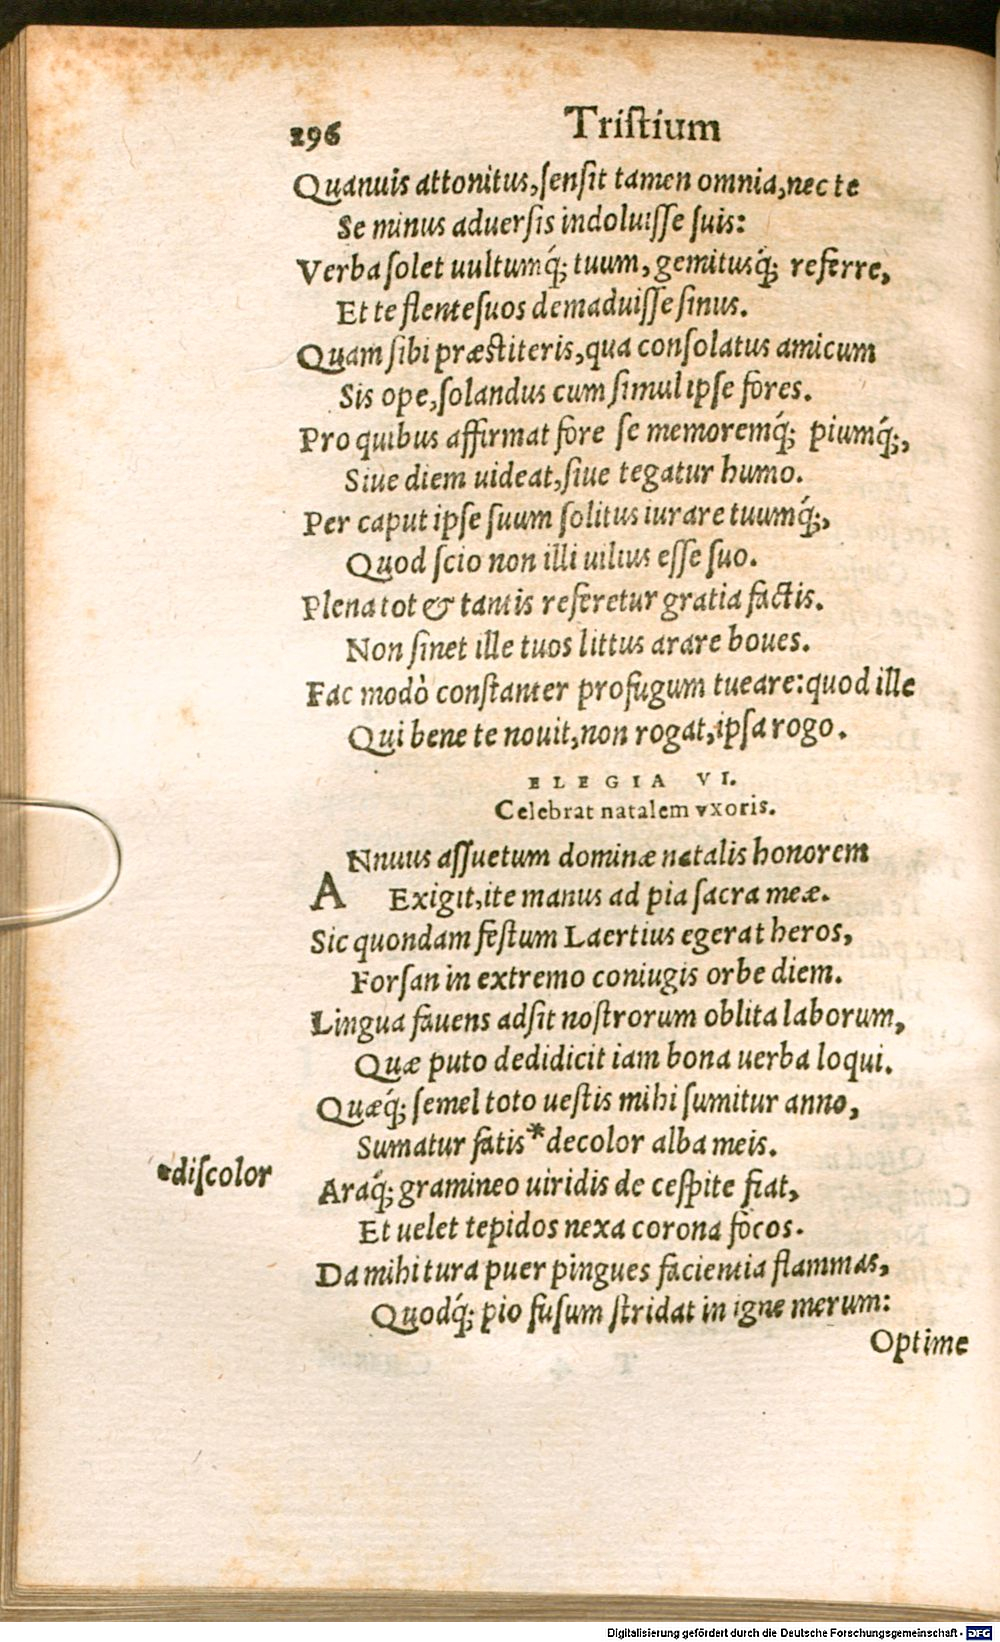 296 Triſtium
Quanuis attonitus,ſenſit tamen omnia,nec te
Se minus aduerſis indoluiſſe ſuis:
Verba ſolet uultumq́; tuum, gemitusq́; referre,
Et te flente ſuos demaduiſſe ſinus.
Quam ſibi præſtiteris,qua conſolatus amicum
Sis ope,ſolandus cum ſimul ipſe fores.
Pro quibus affirmat fore ſe memoremq́; piumq́;,
Siue diem uideat,ſiue tegatur humo.
Per caput ipſe ſuum ſolitus iurare tuumq́;,
Quod ſcio non illi uilius eſſe ſuo.
Plena tot & tantis referetur gratia factis.
Non ſinet ille tuos littus arare boues.
Fac modò conſtanter profugum tueare:quod ille
Qui bene te nouit,non rogat,ipſa rogo.
ELEGIA VI.
Celebrat natalem vxoris.
ANnuus aſſuetum dominæ natalis honorem
Exigit,ite manus ad pia ſacra meæ.
Sic quondam feſtum Laertius egerat heros,
Forſan in extremo coniugis orbe diem.
Lingua fauens adſit noſtrorum oblita laborum,
Quæ puto dedidicit iam bona uerba loqui.
Quæq́; ſemel toto ueſtis mihi ſumitur anno,
Sumatur fatis*decolor alba meis.
*diſcolor
Araq́; gramineo uiridis de ceſpite fiat,
Et uelet tepidos nexa corona focos.
Da mihi tura puer pingues facientia flammas,
Quodq́; pio fuſum ſtridat in igne merum:
Optime
Digitalisierung gefördert durch die Deutsche Forschungsgemeinschaft - DFG